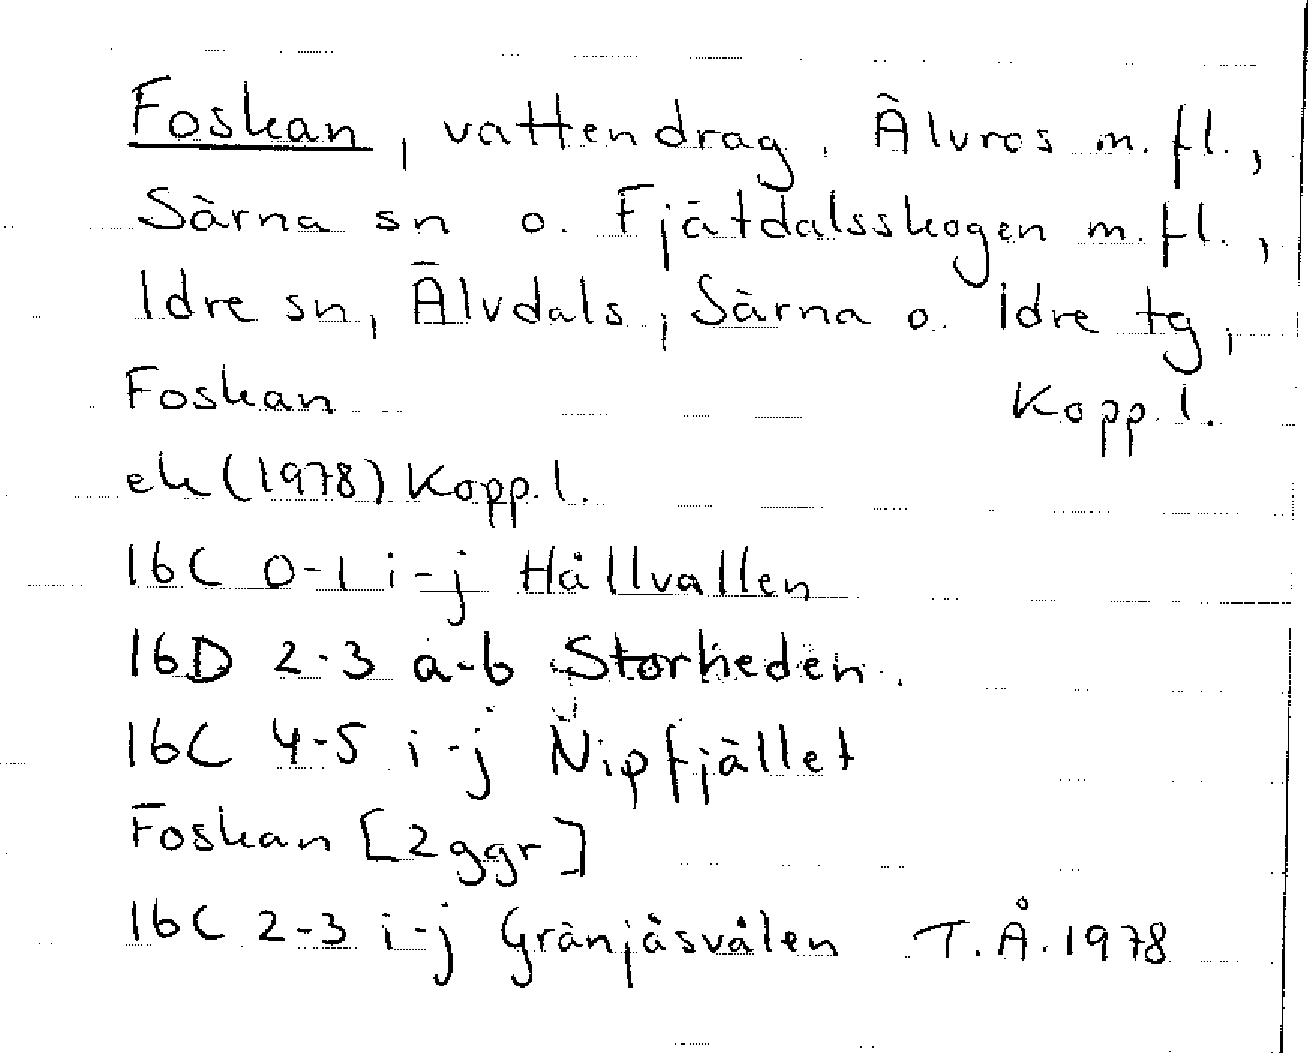 Foskan, vattendrag, Älvros m.fl.,
Särna sn o. Fjätdalsskogen m.fl.,
Idre sn, Älvdals, Särna o. Idre tg,
Foskan Kopp.l.
ek (1978) Kopp.l.
16C 0-1 i-j Hållvallen
16D 2-3 a-b Storheden.
16C 4-5 i-j Nipfjället
Foskan [2 ggr]
16C 2-3 i-j Gränjåsvålen T.Å. 1978